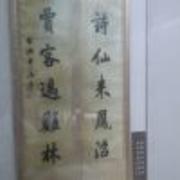 詩仙來鳳沼
賈客過雞林